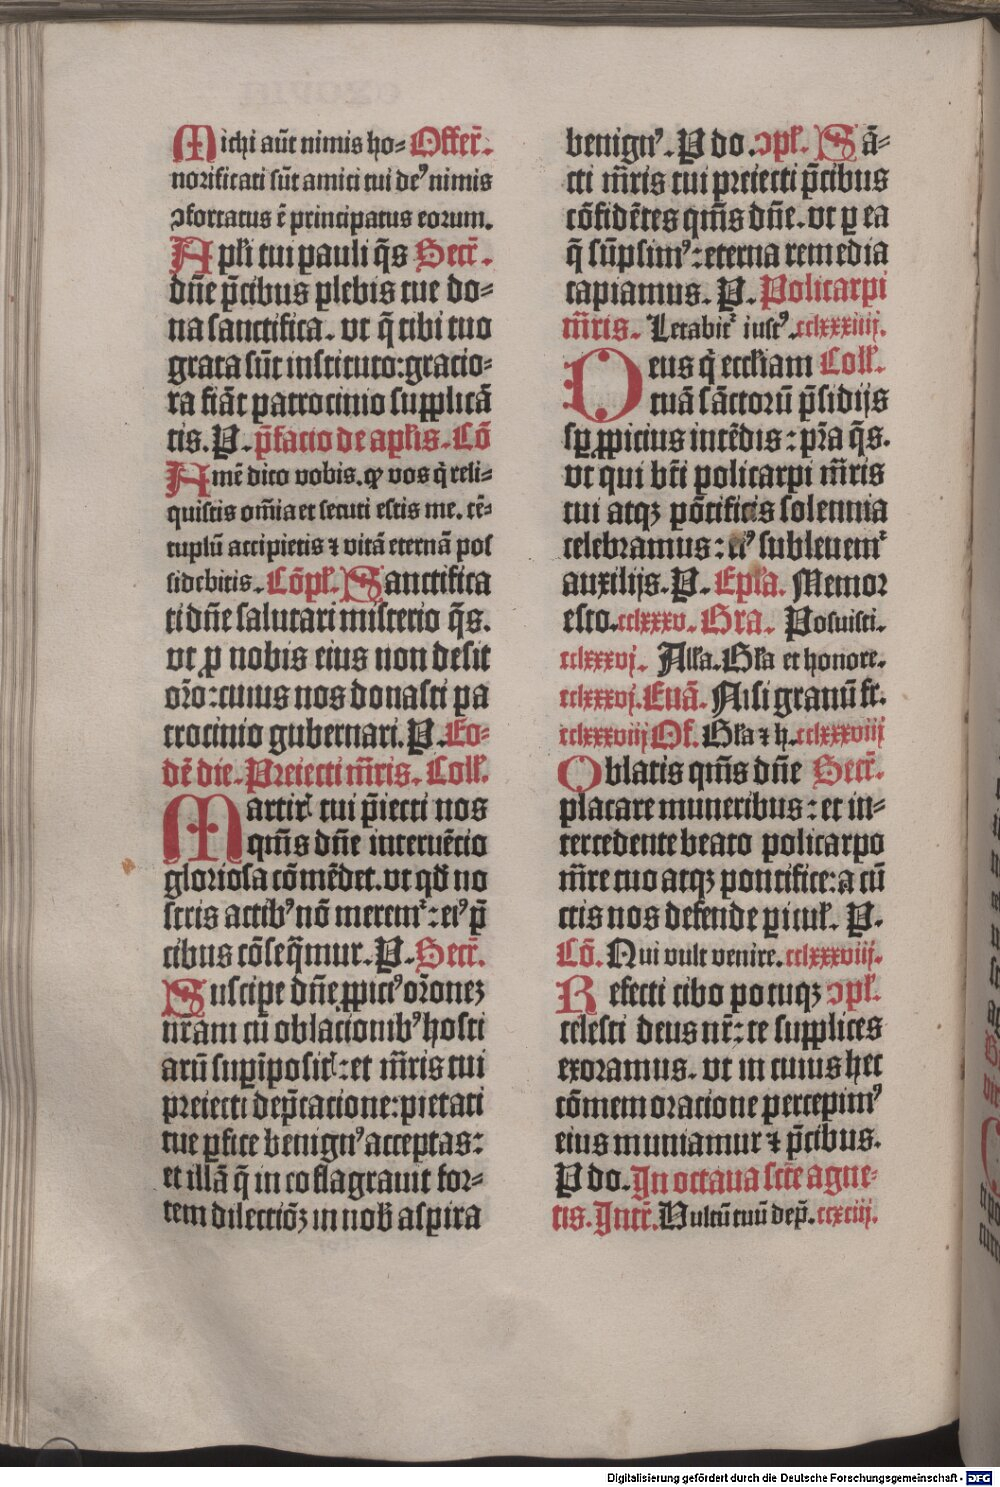 Michi aut̄ nimis ho- Offer̄.
norificati sūt amici tui deꝰ nimis
ɔfortatus ē principatus eorum.
Apl̄i tui pauli q̄s Secr̄.
dn̄e p̄cibus plebis tue do-
na sanctifica. vt q̄ tibi tuo
grata sūt instituto: gracio-
ra fiāt patrocinio supplicā
tis. P. p̄facio de apl̄is. Cō
Amē dico vobis. ꝙ vos q̄ reli-
quistis om̄ia et secuti estis me. cē-
tuplū accipietis ⁊ vitā eternā pos
sidebitis. Cōpl̄. Sanctifica
ti dn̄e salutari misterio q̄s.
vt ꝓ nobis eius non desit
or̄o: cuius nos donasti pa
trocinio gubernari. P. Eo-
dē die. Preiecti m̄ris. Coll̄.
Martir̄ tui p̄iecti nos
qm̄s dn̄e interuētio
gloriosa cōmēdet. vt qd̄ no
stris actibꝰ nō meremr̄: eiꝰ p̄
cibus cōseq̄mur. P. Secr̄.
Suscipe dn̄e ꝓpiciꝰ or̄onez
nr̄am cū oblacionibꝰ hosti
arū sup̄imposit̄: et m̄ris tui
preiecti dep̄cacione: pietati
tue ꝑfice benignꝰ acceptas:
et illā q̄ in eo flagrauit for-
tem dilectiōꝫ in nob̄ aspira
benignꝰ. P do. ɔpl̄. Sā-
cti m̄ris tui preiecti p̄cibus
cōfidētes qm̄s dn̄e. vt ꝑ ea
q̄ sūpsimꝰ: eterna remedia
capiamus. P. Policarpi
m̄ris. Letabit̄ iustꝰ. cclxxxiiij.
Deus q̄ eccl̄iam Coll̄.
tuā sāctorū p̄sidijs
sꝑ ꝓpicius intēdis: pr̄a q̄s.
vt qui bt̄i policarpi m̄ris
tui atqꝫ pōtificis solennia
celebramus: eiꝰ subleuemr̄
auxilijs. P. Epl̄a. Memor
esto. cclxxxv. Gra. Posuisti.
cclxxxvj. All̄a. Gl̄a et honore.
cclxxxvj. Euā. Nisi granū fr.
cclxxxviij Of. Gl̄a ⁊ h. cclxxxviij
Oblatis qm̄s dn̄e Secr̄.
placare muneribus: et in-
tercedente beato policarpo
m̄re tuo atqꝫ pontifice: a cū
ctis nos defende picul̄. P.
Cō. Qui vult venire. cclxxxviij.
Refecti cibo potuqꝫ ɔpl̄.
celesti deus nr̄: te supplices
exoramus. vt in cuius hec
cōmemoracione percepimꝰ
eius muniamur ⁊ p̄cibus.
P do. In octaua sctē agne-
tis. Intr̄. Vultū tuū dep̄. ccxciij.
Digitalisierung gefördert durch die Deutsche Forschungsgemeinschaft - DFG